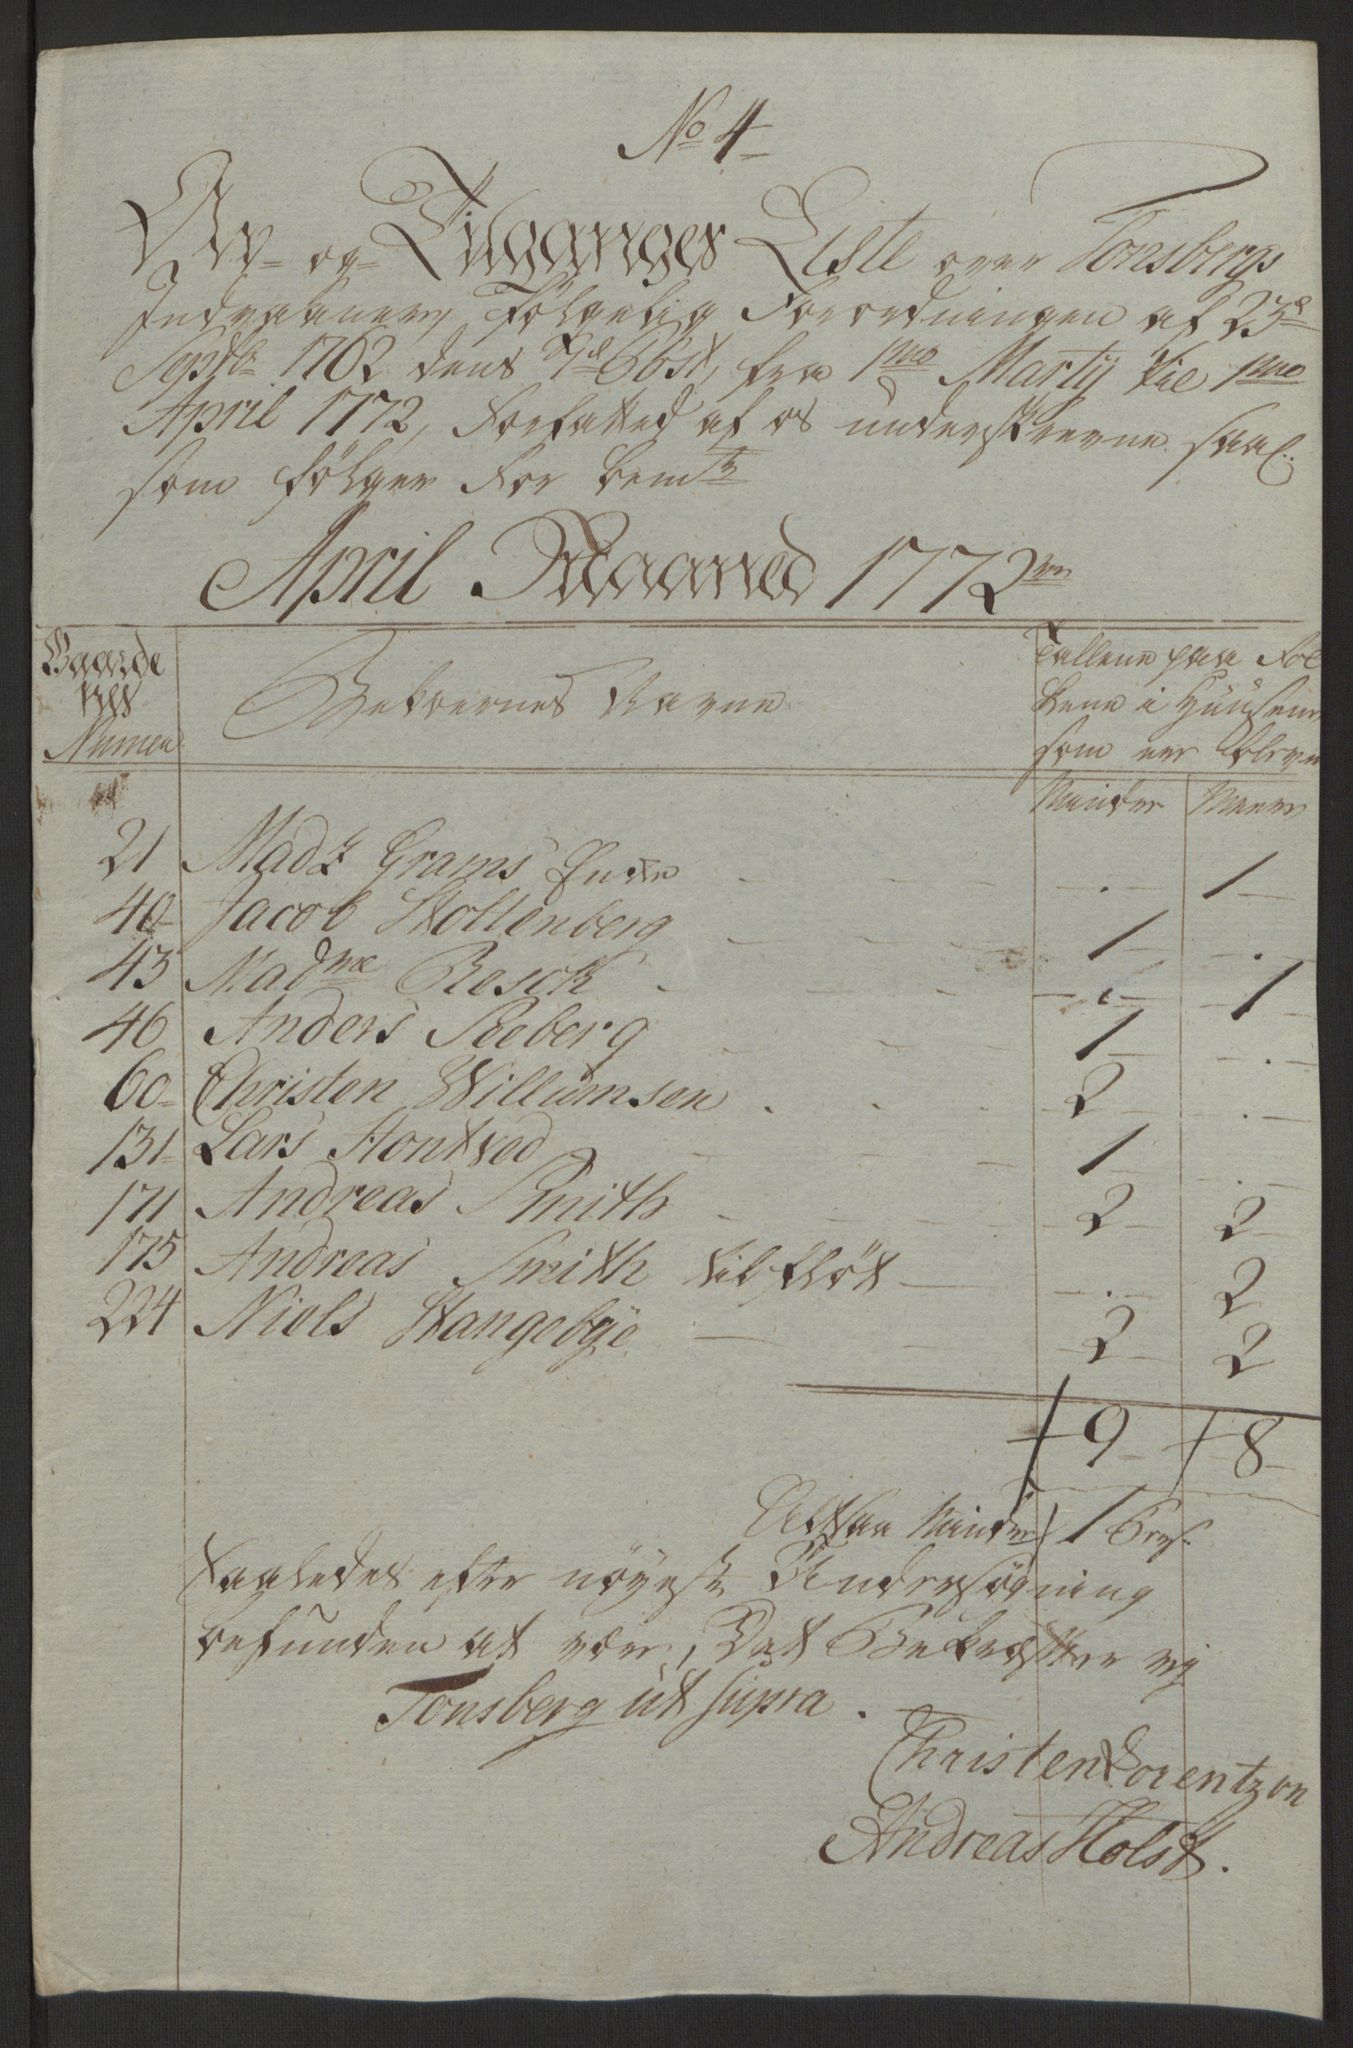 No 4
Av- og Tilganges Liste over Tonsbergs
Indvaanere, følgelig Forordningen af 23de
Septbr 1762 dens 9de Post, fra 1mo Martij til 1mo
April 1772, Forfatted af os underskrevne saal:
som følger for bemte
April Maaned 1772
Gaarde
nes
Numer
Beboernes Navne
Tallene paa Fol
kene i Huusene
som ere bleven
Minder Meere
21 Mads Grams Enke - . 1
40 Jacob Stoltenberg - 1 .
43 Madme Resch - . 1
46 Anders Seeberg - 1 .
60 Christen Willumsen . 2 .
131 Lars Hontved - 1 .
171 Andreas Smith - 2 2
175 Andreas Smith tilfløt - . 2
224 Niels Stangebÿe - 2 2
9 8
Altsaa Minder 1 Pers.
Saaledes efter nøyeste Undersøgning
befunden at være, Det Bekræfter vi
Tonsberg ut supra.
Christen Lorentzon
Andreas Holst.